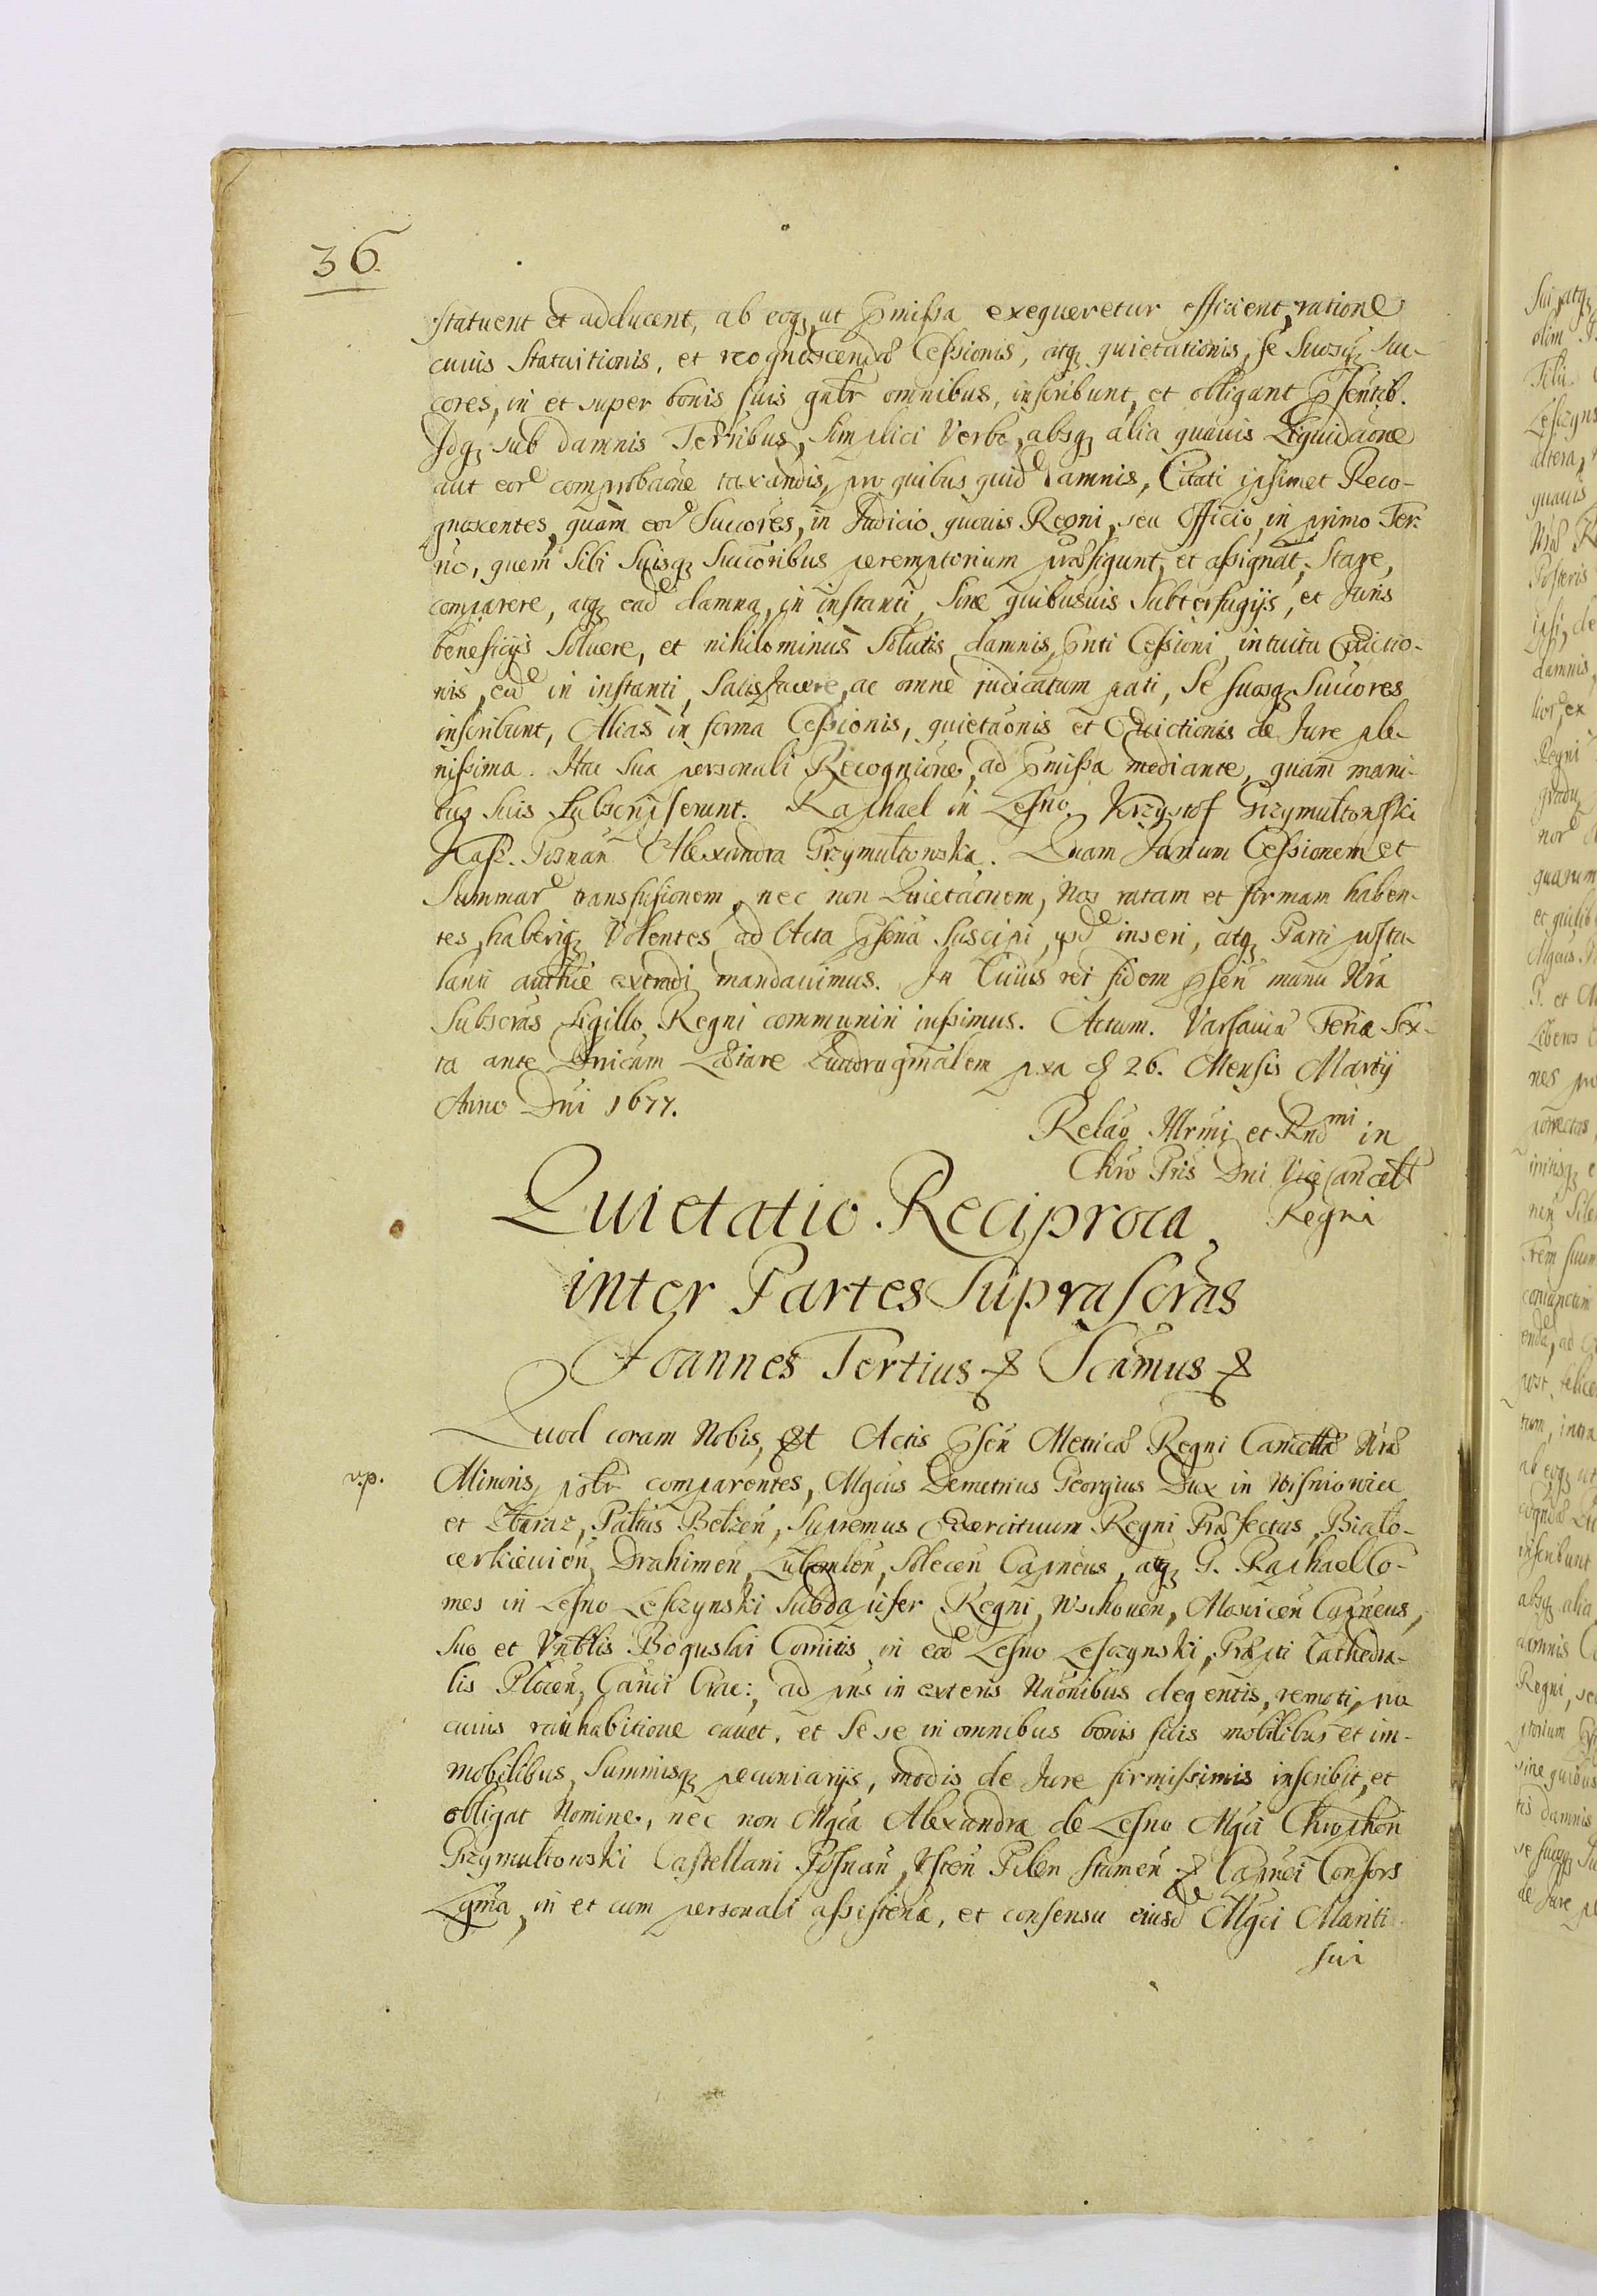 36
statuent et adducent, ab eoq, ut pmissa exequeretur efficient, ratione
cuius Statuitionis, et recognoscendæ Cessionis, atq quietationis, se Suosq Suc-
cores, in et super bonis suis gnlr omnibus, inscribunt, et obligant psentib.
Idq sub damnis Terribus, Simplici Verbo, absq alia quauis Liquidaone
aut eord comprobaone taxandis, pro quibus quid damnis, Citati ipsimet Reco-
gnoscentes, quam eord Succores, in Judicio quouis Regni, seu Officio, in primo Ter-
no, quem Sibi Suisq Succoribus peremptorium præfigunt, et assignat, Stare,
comparere, atq ead damna, in instanti, Sine quibusuis Subterfugijs, et Juris
beneficijs Soluere, et nihilominus Solutis damnis, pnti Cessioni, intuitu Euictio-
nis, ead in instanti, Satisfacere, ac omne judicatum pati, Se suosq Succores
inscribunt, Alias in forma Cessionis, quietaonis et Euictionis de Jure ple-
nissima. Hac Sua personali Recognitione, ad pmissa mediante, quam mani-
bus Suis Subscripserunt. Raphael in Lesno. Krzysztof Grzymultowski
Kasz. Poznan Alexandra Grzymultowska. Quam Januum Cessionem et
Summar transfusionem, nec non Quietaonem, Nos ratam et firmam haben-
tes, haberiq Volentes ad Acta psena Suscipi, eisd inseri, atq Parti postu-
lanti authce extradi mandauimus. In Cuius rei fidem psen manu Nra
Subscras Sigillo Regni communiri iussimus. Actum. Varsauiæ Feria Sex-
ta ante Dnicam Lætare Quadragmalem pxa d 26. Mensis Martij
Anno Dni 1677.
Relao Illrmi et Rndmi in
Chro Pris Dni Vice Cancell
Regni
Quietatio Reciproca
inter Partes Suprascras
Joannes Tertius & Scamus &
Quod coram Nobis, et Actis psen Metricæ Regni Cancellæ Nræ
v.p.
Minoris, psolr comparentes, Mgcus Demetrius Georgius Dux in Wisniowiec
et Zbaraz, Palnus Belzen, Supremus Exercituum Regni Præfectus, Bialo-
cerkieuien, Drahimen, Lubomlen, Solecen Capneus, atq G. Raphael Co-
mes in Lesno Leszczynski Subdapifer Regni, Wschouen, Mosicen Capneus,
Suo et Vnblis Boguslai Comitis in eod Lesno Leszczynski, Præpti Cathedra-
lis Plocen, Canci Crac:, ad pns in exteris Naonibus degentis, remoti, pro
cuius ratihabitione cauet, et Sese in omnibus bonis suis mobilibus et im-
mobilibus, Summisq pecuniarijs, modis de Jure firmissimis inscribit, et
obligat Nomine, nec non Mgca Alexandra de Lesno Mgci Chrophori
Grzymultowski Castellani Posnan, Vsten Pilen Stamen & Capnei Consors
Lgma, in et cum personali assistena, et consensu eiusd Mgci Mariti
sui